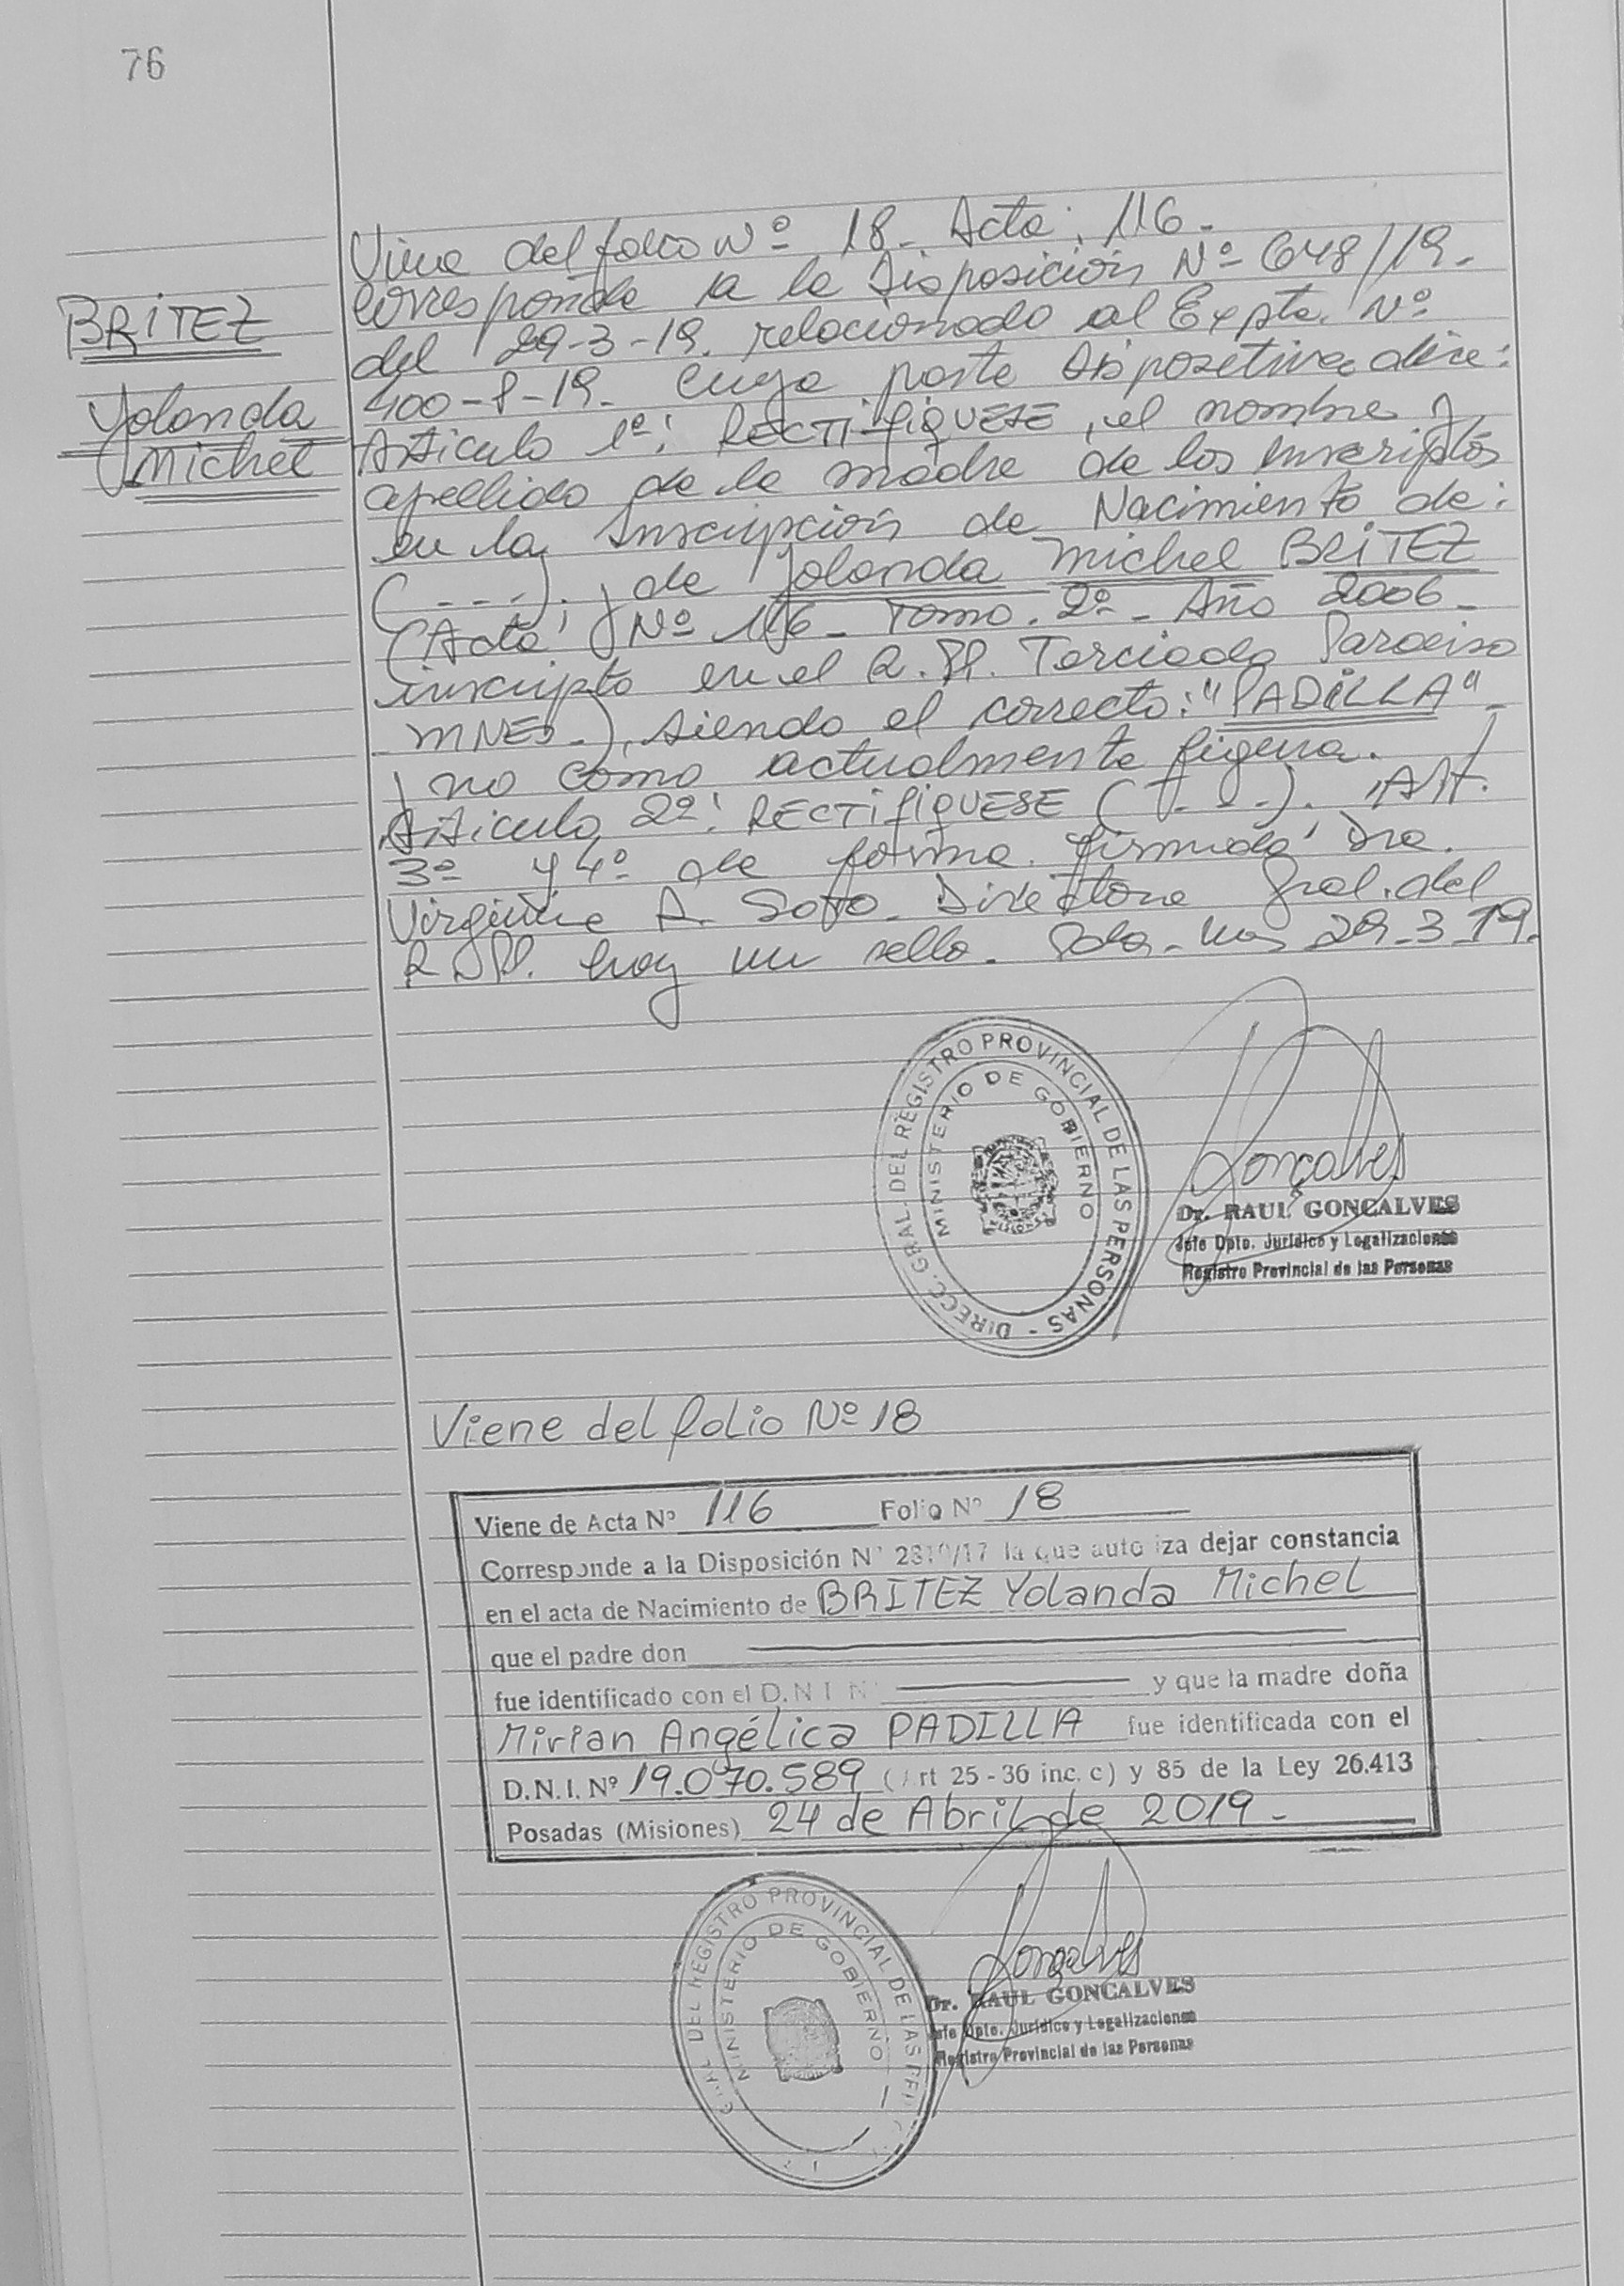 76
BRITEZ
Yolanda
Michel
Viene del folio Nº 18 - Acta: 116 -
corresponde a la Disposición Nº 648/19 -
del 29-3-19. relacionado al Expte. Nº
400-P-19. cuya parte dispositiva dice:
Articulo 1º: RECTIFIQUESE, el nombre y
apellido de la madre de los inscriptos
en la Inscripción de Nacimiento de:
(- - -). y de Yolanda Michel BRITEZ
(Acta Nº 116 - Tomo. 2º - Año 2006 -
inscripto en el R.P. Terciado Paraiso
MNES.), siendo el correcto: "PADILLA" -
y no como actualmente figura.
Articulo 2º: RECTIFIQUESE (- - -). Art.
3º y 4º de forma. firmado Dra.
Virginia A. Soto - Directora Gral. del
hay un sello. Pdas - Mnes 29-3-19.
DIRECC. GRAL. DEL REGISTRO PROVINCIAL DE LAS PERSONAS -
MINISTERIO DE GOBIERNO
Gonçalves
Dr. RAUL GONCALVES
Jefe Dpto. Jurídico y Legalizaciones
Registro Provincial de las Personas
Viene del folio Nº 18
Viene de Acta Nº 116 Folio Nº 18
Corresponde a la Disposición Nº 2810/17 la que autoriza dejar constancia
en el acta de Nacimiento de BRITEZ Yolanda Michel
que el padre don
fue identificado con el D.N.I. Nº y que la madre doña
Mirian Angélica PADILLA fue identificada con el
D.N.I. Nº 19.070.589 (Art 25 - 36 inc. c) y 85 de la Ley 26.413
Posadas (Misiones) 24 de Abril de 2019 -
GRAL. DEL REGISTRO PROVINCIAL DE LAS PER
MINISTERIO DE GOBIERNO
Gonçalves
Dr. RAUL GONCALVES
Jefe Dpto. Jurídico y Legalizaciones
Registro Provincial de las Personas